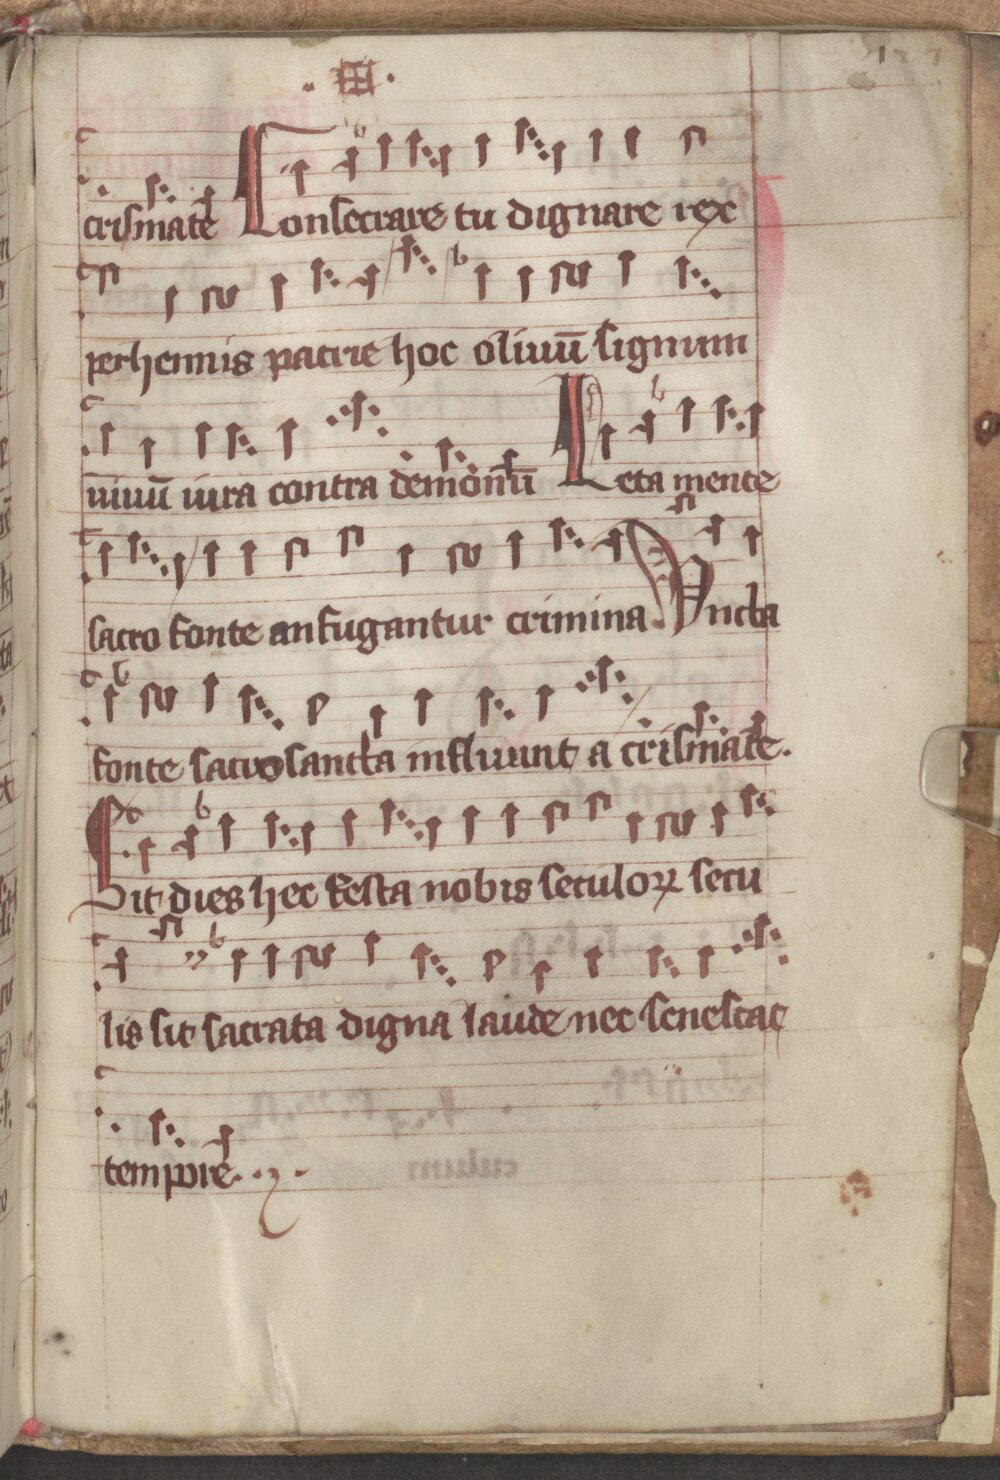 crismate Consecrare tu dignare rex
perhennis patrie hoc oliuū signum
uiuū iura contra demonū Leta mente
sacro fonte aufugantur crimina. Vncta
fonte sacrosancta influunt a crismate.
Sit dies hec festa nobis seculoꝝ secu
lis sit sacrata digna laude nec senescat
tempore.